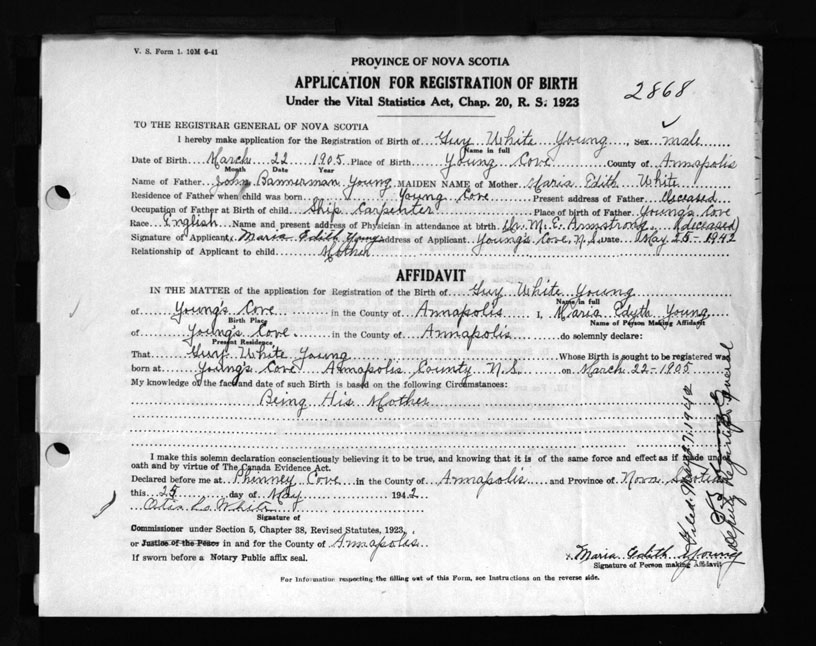 V. S. Form 1. 10M 6-41
PROVINCE OF NOVA SCOTIA
APPLICATION FOR REGISTRATION OF BIRTH
2868
Under the Vital Statistics Act, Chap. 20, R. S. 1923
TO THE REGISTRAR GENERAL OF NOVA SCOTIA
I hereby make application for the Registration of Birth of Guy White Young, Sex male
Name in full
Date of Birth March 22 1905 Place of Birth Young Cove County of Annapolis
Month Date Year
Name of Father John Bannerman Young MAIDEN NAME of Mother Maria Edith White
Residence of Father when child was born Young Cove Present address of Father deceased
Occupation of Father at Birth of child Ship Carpenter Place of birth of Father Young's Cove
Race English Name and present address of Physician in attendance at birth Dr. M. E. Armstrong (deceased)
Signature of Applicant Maria Edith Young Address of Applicant Young's Cove, N.S. Date May 25-1942
Relationship of Applicant to child Mother
AFFIDAVIT
IN THE MATTER of the application for Registration of the Birth of Guy White Young
Name in full
of Young's Cove in the County of Annapolis I, Maria Edyth Young
Birth Place Name of Person Making Affidavit
of Young's Cove in the County of Annapolis do solemnly declare:
Present Residence
That Guy White Young Whose Birth is sought to be registered was
born at Young's Cove Annapolis County N.S. on March 22-1905
My knowledge of the fact and date of such Birth is based on the following Circumstances:
Being His Mother
I make this solemn declaration conscientiously believing it to be true, and knowing that it is of the same force and effect as if made under
oath and by virtue of The Canada Evidence Act.
Declared before me at Phinney Cove in the County of Annapolis and Province of Nova Scotia
this 25 day of May 1942
White
Signature of
Commissioner under Section 5, Chapter 38, Revised Statutes, 1923,
or Justice of the Peace in and for the County of Annapolis
If sworn before a Notary Public affix seal.
Maria Edith Young
Signature of Person making Affidavit
For Information respecting the filling out of this Form, see Instructions on the reverse side.
Filed May 27, 1942
Deputy Registrar General